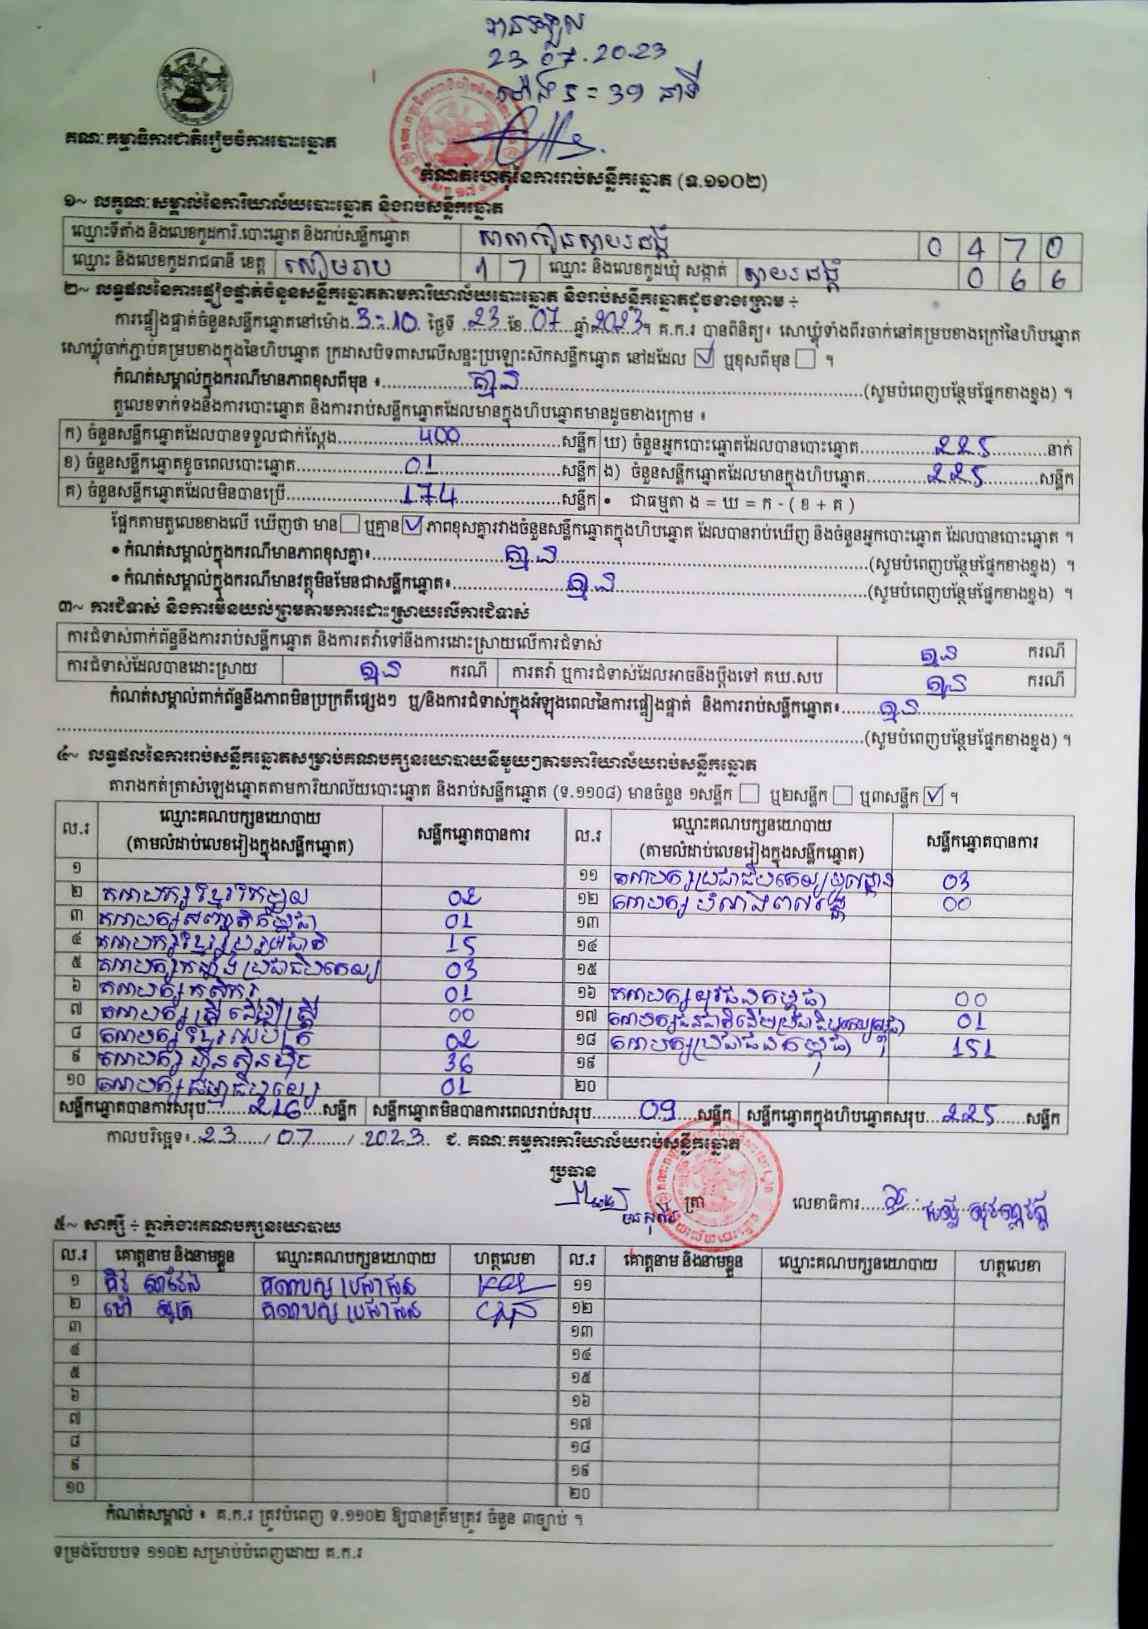 បានឃើញ
23.07.2023
ម៉ោង ៖ 39 នាទី
គណៈកម្មាធិការជាតិរៀបចំការបោះឆ្នោត
កំណត់ហេតុនៃការរាប់សន្លឹកឆ្នោត (ទ.១១០២)
១~ លក្ខណៈសម្គាល់នៃការិយាល័យបោះឆ្នោត និងរាប់សន្លឹកឆ្នោត
ឈ្មោះទីតាំង និងលេខកូដការិ.បោះឆ្នោត និងរាប់សន្លឹកឆ្នោត 0 4 7 0
ឈ្មោះ និងលេខកូដរាជធានី ខេត្ត សៀមរាប 1 7 ឈ្មោះ និងលេខកូដឃុំ សង្កាត់ 0 6 6
២~ លទ្ធផលនៃការផ្ទៀងផ្ទាត់ចំនួនសន្លឹកឆ្នោតតាមការិយាល័យបោះឆ្នោត និងរាប់សន្លឹកឆ្នោតដូចខាងក្រោម ÷
ការផ្ទៀងផ្ទាត់ចំនួនសន្លឹកឆ្នោតនៅម៉ោង 3:10 ថ្ងៃទី 23 ខែ 07 ឆ្នាំ 2023 ។ គ.ក.រ បានពិនិត្យ៖ សោឃ្លុំទាំងពីរចាក់នៅគម្របខាងក្រៅនៃហិបឆ្នោត
សោឃ្លុំចាក់ភ្ជាប់គម្របខាងក្នុងនៃហិបឆ្នោត ក្រដាសបិទពាសលើសន្ទះប្រឡោះស៊កសន្លឹកឆ្នោត នៅដដែល ☑ ឬខុសពីមុន ☐ ។
កំណត់សម្គាល់ក្នុងករណីមានភាពខុសពីមុន ៖ គ្មាន (សូមបំពេញបន្ថែមផ្នែកខាងខ្នង) ។
តួលេខទាក់ទងនឹងការបោះឆ្នោត និងការរាប់សន្លឹកឆ្នោតដែលមានក្នុងហិបឆ្នោតមានដូចខាងក្រោម ៖
ក) ចំនួនសន្លឹកឆ្នោតដែលបានទទួលជាក់ស្តែង 400 សន្លឹក ឃ) ចំនួនអ្នកបោះឆ្នោតដែលបានបោះឆ្នោត 225 នាក់
ខ) ចំនួនសន្លឹកឆ្នោតខូចពេលបោះឆ្នោត 01 សន្លឹក ង) ចំនួនសន្លឹកឆ្នោតដែលមានក្នុងហិបឆ្នោត 225 សន្លឹក
គ) ចំនួនសន្លឹកឆ្នោតដែលមិនបានប្រើ 174 សន្លឹក • ជាធម្មតា ង = ឃ = ក - ( ខ + គ )
ផ្អែកតាមតួលេខខាងលើ ឃើញថា មាន ☐ ឬគ្មាន ☑ ភាពខុសគ្នារវាងចំនួនសន្លឹកឆ្នោតក្នុងហិបឆ្នោត ដែលបានរាប់ឃើញ និងចំនួនអ្នកបោះឆ្នោត ដែលបានបោះឆ្នោត ។
• កំណត់សម្គាល់ក្នុងករណីមានភាពខុសគ្នា៖ គ្មាន (សូមបំពេញបន្ថែមផ្នែកខាងខ្នង) ។
• កំណត់សម្គាល់ក្នុងករណីមានវត្ថុមិនមែនជាសន្លឹកឆ្នោត៖ គ្មាន (សូមបំពេញបន្ថែមផ្នែកខាងខ្នង) ។
៣~ ការជំទាស់ និងការមិនយល់ព្រមតាមការដោះស្រាយលើការជំទាស់
ការជំទាស់ពាក់ព័ន្ធនឹងការរាប់សន្លឹកឆ្នោត និងការតវ៉ាទៅនឹងការដោះស្រាយលើការជំទាស់ គ្មាន ករណី
ការជំទាស់ដែលបានដោះស្រាយ គ្មាន ករណី ការតវ៉ា ឬការជំទាស់ដែលអាចនឹងប្តឹងទៅ គឃ.សប គ្មាន ករណី
កំណត់សម្គាល់ពាក់ព័ន្ធនឹងភាពមិនប្រក្រតីផ្សេងៗ ឬ/និងការជំទាស់ក្នុងអំឡុងពេលនៃការផ្ទៀងផ្ទាត់ និងការរាប់សន្លឹកឆ្នោត៖ គ្មាន
(សូមបំពេញបន្ថែមផ្នែកខាងខ្នង) ។
៤~ លទ្ធផលនៃការរាប់សន្លឹកឆ្នោតសម្រាប់គណបក្សនយោបាយនីមួយៗតាមការិយាល័យរាប់សន្លឹកឆ្នោត
តារាងកត់ត្រាសំឡេងឆ្នោតតាមការិយាល័យបោះឆ្នោត និងរាប់សន្លឹកឆ្នោត (ទ.១១០៨) មានចំនួន ១សន្លឹក ☐ ឬ២សន្លឹក ☐ ឬ៣សន្លឹក ☑ ។
ល.រ ឈ្មោះគណបក្សនយោបាយ (តាមលំដាប់លេខរៀងក្នុងសន្លឹកឆ្នោត) សន្លឹកឆ្នោតបានការ ល.រ ឈ្មោះគណបក្សនយោបាយ (តាមលំដាប់លេខរៀងក្នុងសន្លឹកឆ្នោត) សន្លឹកឆ្នោតបានការ
១ ១១ គណបក្សប្រជាធិបតេយ្យមូលដ្ឋាន 03
២ គណបក្សខ្មែរ 02 ១២ គណបក្ស 00
៣ គណបក្សសញ្ជាតិកម្ពុជា 01 ១៣
៤ គណបក្សខ្មែរ 15 ១៤
៥ គណបក្សកម្លាំងប្រជាធិបតេយ្យ 03 ១៥
៦ គណបក្សកសិករ 01 ១៦ គណបក្សយុវជនកម្ពុជា 00
៧ គណបក្សស្ត្រីដើម្បីស្ត្រី 00 ១៧ គណបក្សជនជាតិដើមប្រជាធិបតេយ្យកម្ពុជា 01
៨ គណបក្សខ្មែរ 02 ១៨ គណបក្សប្រជាជនកម្ពុជា 151
៩ គណបក្សហ៊្វុនស៊ិនប៉ិច 36 ១៩
១០ គណបក្សធម្មាធិបតេយ្យ 01 ២០
សន្លឹកឆ្នោតបានការសរុប 216 សន្លឹក សន្លឹកឆ្នោតមិនបានការពេលរាប់សរុប 09 សន្លឹក សន្លឹកឆ្នោតក្នុងហិបឆ្នោតសរុប 225 សន្លឹក
កាលបរិច្ឆេទ៖ 23 / 07 / 2023 ជ. គណៈកម្មការការិយាល័យរាប់សន្លឹកឆ្នោត
ប្រធាន
ត្រា លេខាធិការ
៥~ សាក្សី ÷ ភ្នាក់ងារគណបក្សនយោបាយ
ល.រ គោត្តនាម និងនាមខ្លួន ឈ្មោះគណបក្សនយោបាយ ហត្ថលេខា ល.រ គោត្តនាម និងនាមខ្លួន ឈ្មោះគណបក្សនយោបាយ ហត្ថលេខា
១ គណបក្ស ប្រជាជន ១១
២ គណបក្ស ប្រជាជន ១២
៣ ១៣
៤ ១៤
៥ ១៥
៦ ១៦
៧ ១៧
៨ ១៨
៩ ១៩
១០ ២០
កំណត់សម្គាល់ ៖ គ.ក.រ ត្រូវបំពេញ ទ.១១០២ ឱ្យបានត្រឹមត្រូវ ចំនួន ៣ច្បាប់ ។
ទម្រង់បែបបទ ១១០២ សម្រាប់បំពេញដោយ គ.ក.រ